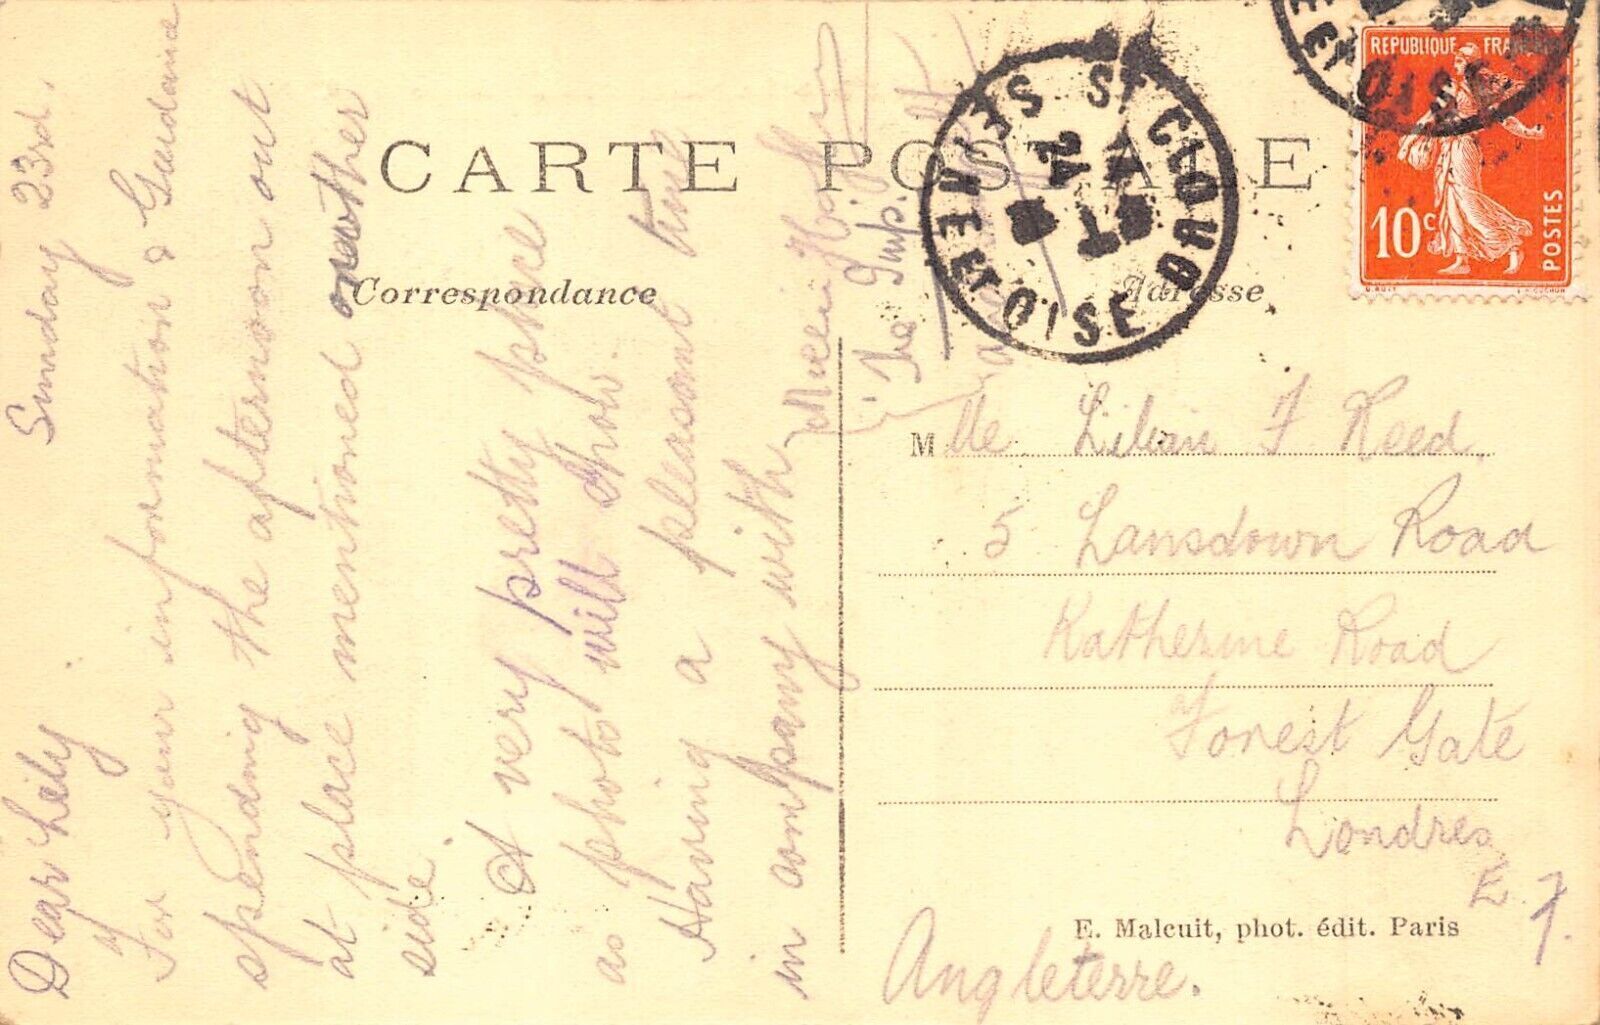 CARTE POSTALE
Correspondance
Adresse
Sunday 23rd.
Dear Lily
For your information & Guidance
spending the afternoon out
at place mentioned on other
side.
A very pretty place
as photo will show.
Having a pleasant time
in company with
The Imp.
Mlle Lilian F Reed
5 Lansdown Road
Katherine Road
Forest Gate
Londres
E. 7.
Angleterre.
E. Malcuit, phot. édit. Paris
ST CLOUD
24
SEINE ET OISE
REPUBLIQUE FRANÇAISE
10c
POSTES
ET OISE